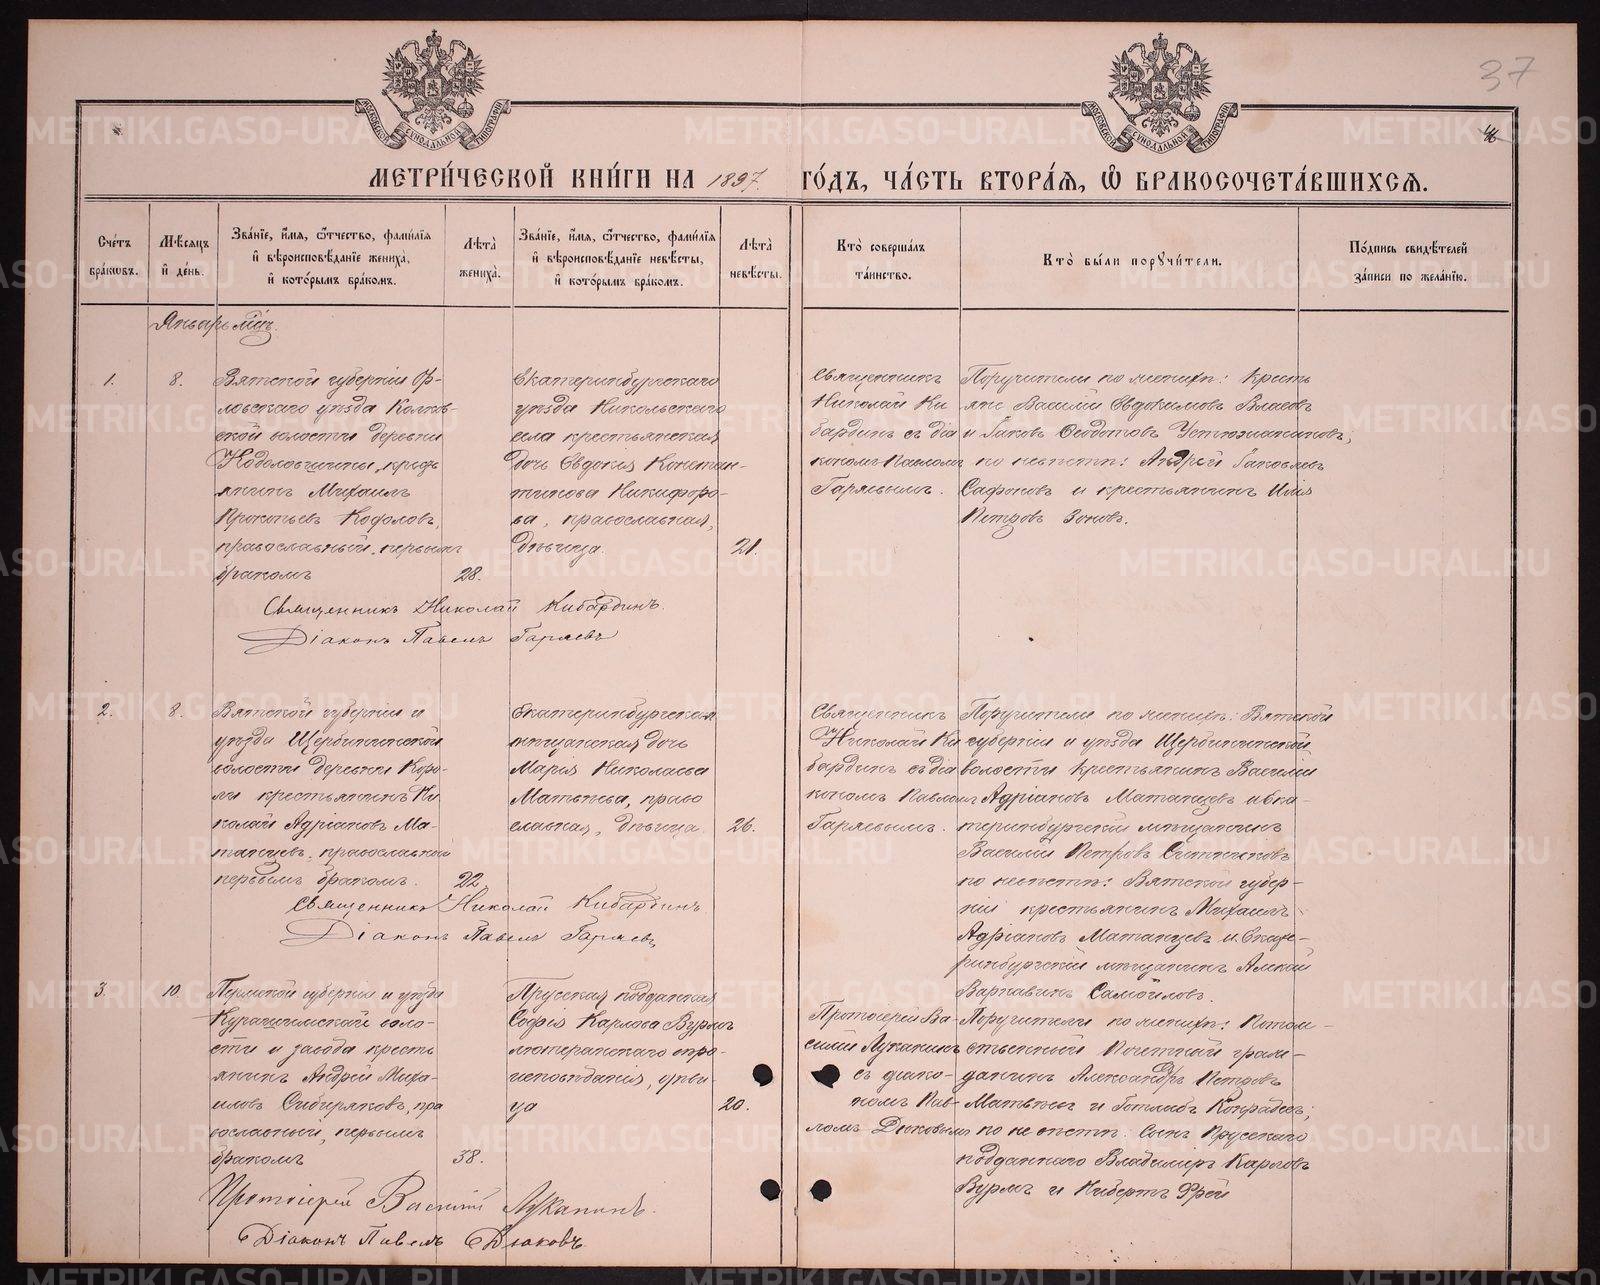 37
46
МОСКОВСКОЙ СѴНОДАЛЬНОЙ ТИПОГРАФІИ
МОСКОВСКОЙ СѴНОДАЛЬНОЙ ТИПОГРАФІИ
МЕТРИ́ЧЕСКОЙ КНИ́ГИ НА 1897 ГО́ДЪ, ЧА́СТЬ ВТОРА́Я, Ѽ БРАКОСОЧЕТА́ВШИХСЯ.
Сче́тъ
бра́кѡвъ.
Мѣ́сяцъ
и҆ де́нь.
Зва́нїе, и҆́мя, ѻ҆́тчество, фами́лїя
и҆ вѣроисповѣ́данїе жениха̀,
и҆ кото́рымъ бра́комъ.
Лѣ́та
жениха̀.
Зва́нїе, и҆́мя, ѻ҆́тчество, фами́лїя
и҆ вѣроисповѣ́данїе невѣ́сты,
и҆ кото́рымъ бра́комъ.
Лѣ́та
невѣ́сты.
Кто̀ соверша́лъ
та́инство.
Кто̀ бы́ли порꙋчи́тели.
По́дпись свидѣ́телей
за́писи по жела́нїю.
Январь мцъ.
1.
8.
Вятской губерніи Ор-
ловскаго уѣзда Колков-
ской волости деревни
Кодоловщины, кресть
янинъ Михаилъ
Прокопьевъ Кодоловъ,
православный, первымъ
бракомъ
28.
Екатеринбургскаго
уѣзда Никольскаго
села крестьянская
дочь Евдокія Констан-
тинова Никифоро-
ва, православная,
дѣвица.
21.
Священникъ
Николай Ки
бардинъ съ діа
кономъ Павломъ
Гаряевымъ.
Поручители по женихѣ: кресть
яне Василій Евдокимовъ Власовъ
и Яковъ Ѳеодотовъ Устюжаниновъ;
по невѣстѣ: Андрей Яковлевъ
Сафоновъ и крестьянинъ Илія
Петровъ Зоновъ.
Священникъ Николай Кибардинъ.
Діаконъ Павелъ Гаряевъ
2.
8.
Вятской губерніи и
уѣзда Щербининской
волости деревни Коро-
ли крестьянинъ Ни
колай Адріановъ Ма-
танцевъ, православный
первымъ бракомъ.
22
Екатеринбургская
мѣщанская дочь
Марія Николаева
Матвѣева, право
славная, дѣвица.
26.
Священникъ
Николай Ки
бардинъ съ діа
кономъ Павломъ
Гаряевымъ.
Поручители по женихѣ: Вятской
губерніи и уѣзда Щербининской
волости крестьянинъ Василій
Адріановъ Матанцевъ и Ека-
теринбургскій мѣщанинъ
Василій Петровъ Ситниковъ
по невѣстѣ: Вятской губер-
ніи крестьянинъ Михаилъ
Адріановъ Матанцевъ и Екате-
ринбургскій мѣщанинъ Алексѣй
Варнавинъ Самойловъ.
Священникъ Николай Кибардинъ
Діаконъ Павелъ Гаряевъ
3.
10.
Пермской губерніи и уѣзда
Курашимской воло-
сти и завода кресть
янинъ Андрей Миха-
иловъ Сибиряковъ, пра
вославный, первымъ
бракомъ
38.
Прусская подданная
Софія Карлова Вурмъ
лютеранскаго вѣро-
исповѣданія, дѣви-
ца
20.
Протоіерей Ва-
силій Луканинъ
съ діако-
номъ Пав-
ломъ Дьяковымъ
Поручители по женихѣ: Потом-
ственный Почетный граж-
данинъ Александръ Петровъ
Матвѣевъ и Готлибъ Конрадовъ;
по невѣстѣ: Сынъ Прусскаго
подданнаго Владимиръ Карловъ
Вурмъ и Нибертъ Фрей
Протоіерей Василій Луканинъ.
Діаконъ Павелъ Дьяковъ.